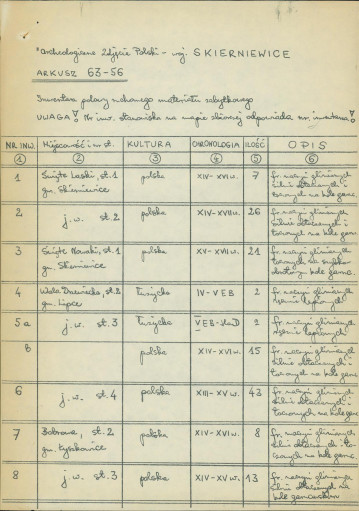 "Archeologiczne Zdjęcie Polski - woj. SKIERNIEWICE
ARKUSZ 63-56
Inwentarz polowy zebranego materiału zabytkowego
UWAGA! Nr inw. stanowiska na mapie zbiorczej odpowiada nr. inwentarza!
NR INW. Miejscowość i nr st. KULTURA CHRONOLOGIA ILOŚĆ OPIS
1 2 3 4 5 6
1 Święte Laski, st. 1 polska XIV-XVI w. 7 fr. naczyń glinianych
silnie obtaczanych i
toczonych na kole garnc.
2 j.w. st. 2 polska XIV-XVII w. 26 fr. naczyń glinianych
silnie obtaczanych i
toczonych na kole garnc.
3 Święte Nowaki, st. 1 polska XV-XVII w. 21 fr. naczyń glinianych
toczonych na
kole garnc.
4 st. 2 łużycka IV-V EB 2 fr. naczyń glinianych
gm. Lipce ręcznie lepionych
5a j.w. st. 3 łużycka V EB-Ha D 2 fr. naczyń glinianych
ręcznie lepionych
B polska XIV-XVI w. 15 fr. naczyń glinianych
silnie obtaczanych i
toczonych na kole garnc.
6 j.w. st. 4 polska XIII-XV w. 43 fr. naczyń glinianych
silnie obtaczanych i
toczonych na kole garnc.
7 Bobrowa, st. 2 polska XIV-XVI w. 8 fr. naczyń glinianych
gm. silnie obtaczanych i to-
czonych na kole garnc.
8 j.w. st. 3 polska XIV-XV w. 13 fr. naczyń glinianych
silnie obtaczanych na
kole garncarskim